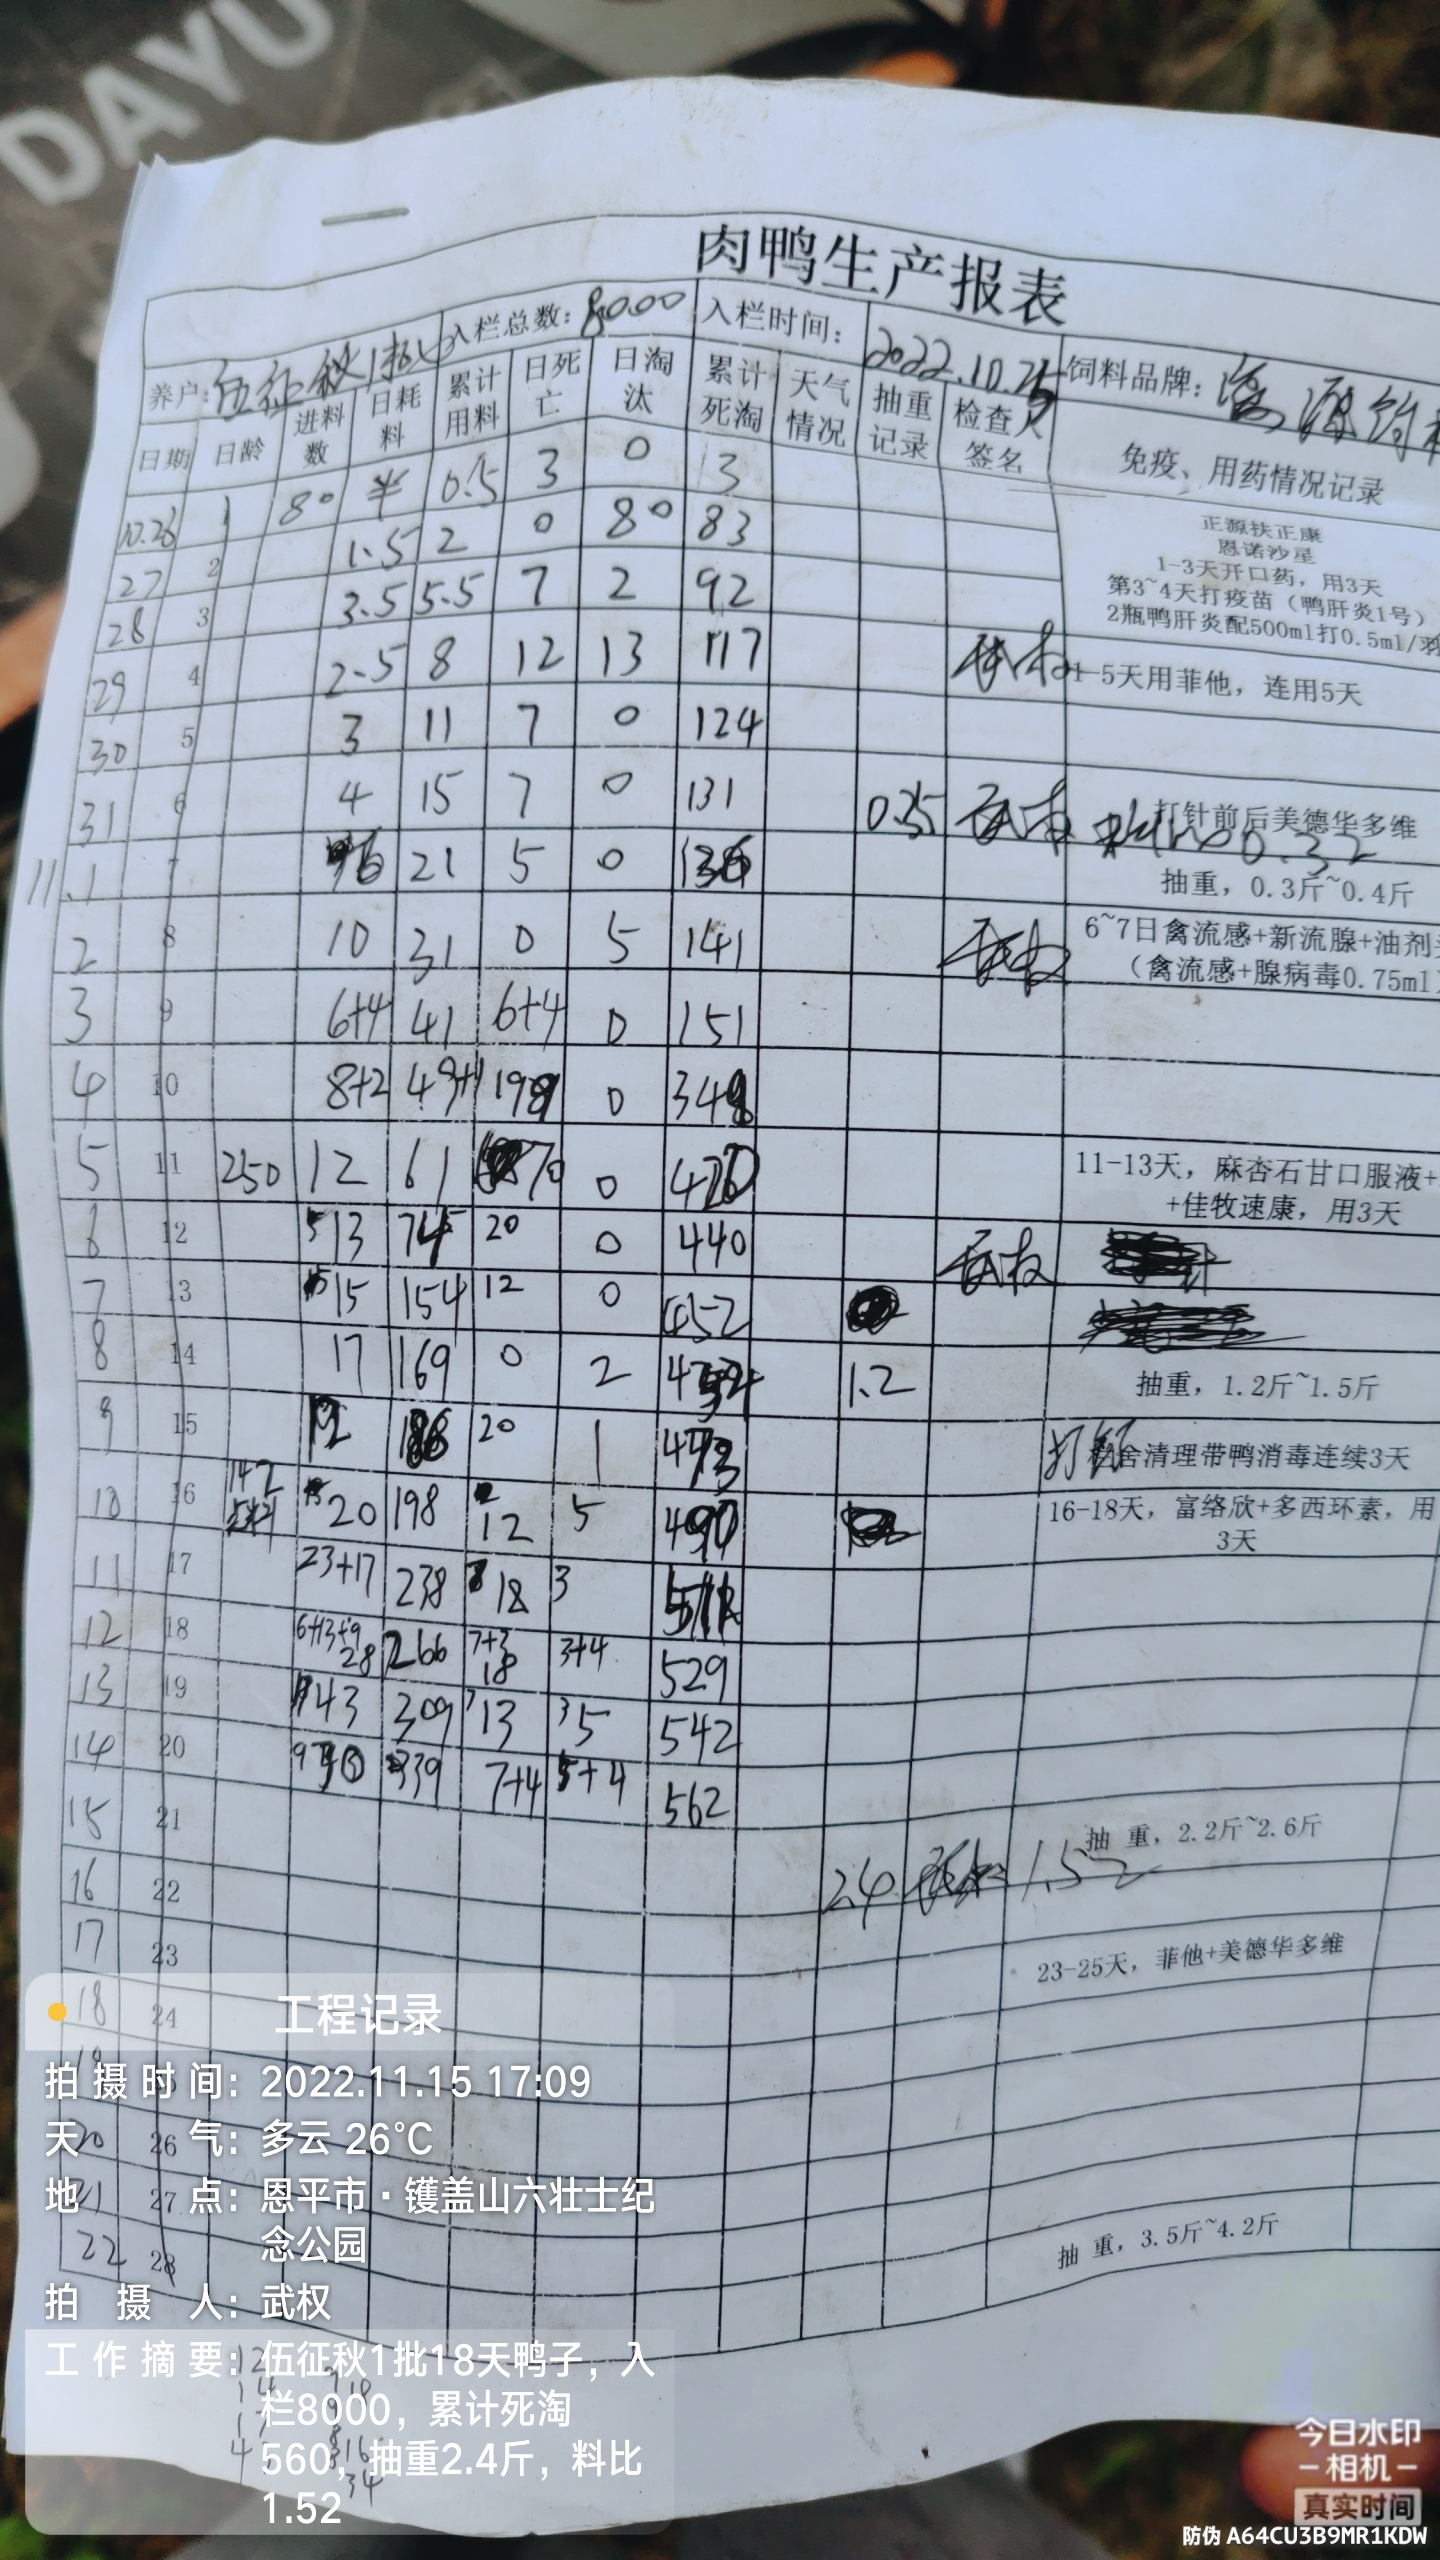 DAYU
肉鸭生产报表
养户: 伍征秋1批 入栏总数: 8000 入栏时间: 2022.10.25 饲料品牌:
日期 日龄 进料数 日耗料 累计用料 日死亡 日淘汰 累计死淘 天气情况 抽重记录 检查人签名 免疫、用药情况记录
10.26 1 80 半 0.5 3 0 3
正源扶正康
恩诺沙星
1-3天开口药，用3天
27 2 1.5 2 0 80 83
第3~4天打疫苗（鸭肝炎1号）
28 3 3.5 5.5 7 2 92
2瓶鸭肝炎配500ml打0.5ml/羽
29 4 2.5 8 12 13 117 武权 1-5天用菲他，连用5天
30 5 3 11 7 0 124
31 6 4 15 7 0 131 0.35 武权 打针前后美德华多维
0.32
11.1 7 6 21 5 0 136 抽重，0.3斤~0.4斤
2 8 10 31 0 5 141 武权 6~7日禽流感+新流腺+油剂
（禽流感+腺病毒0.75ml）
3 9 6+4 41 6+4 0 151
4 10 8+2 49+ 198 0 348
5 11 250 12 61 70 0 420 11-13天，麻杏石甘口服液+
+佳牧速康，用3天
6 12 13 74 20 0 440 武权
7 13 15 154 12 0 452
8 14 17 169 0 2 1.2 抽重，1.2斤~1.5斤
9 15 20 1 473 打针 舍清理带鸭消毒连续3天
10 16 142 20 198 12 5 490 16-18天，富络欣+多西环素，用
3天
11 17 23+17 238 18 3 511
12 18 6+13+9 28 266 7+3 18 3+4 529
13 19 43 309 13 5 542
14 20 339 7+4 5+4 562
15 21 抽 重，2.2斤~2.6斤
16 22 2.4 武权 1.52
17 23 23-25天，菲他+美德华多维
18 24
19
20 26
21 27
22 28 抽 重，3.5斤~4.2斤
工程记录
拍摄时间: 2022.11.15 17:09
天 气: 多云 26℃
地 点: 恩平市·镬盖山六壮士纪
念公园
拍 摄 人: 武权
工作摘要: 伍征秋1批18天鸭子，入
栏8000，累计死淘
560，抽重2.4斤，料比
1.52
今日水印
相机
真实时间
防伪 A64CU3B9MR1KDW